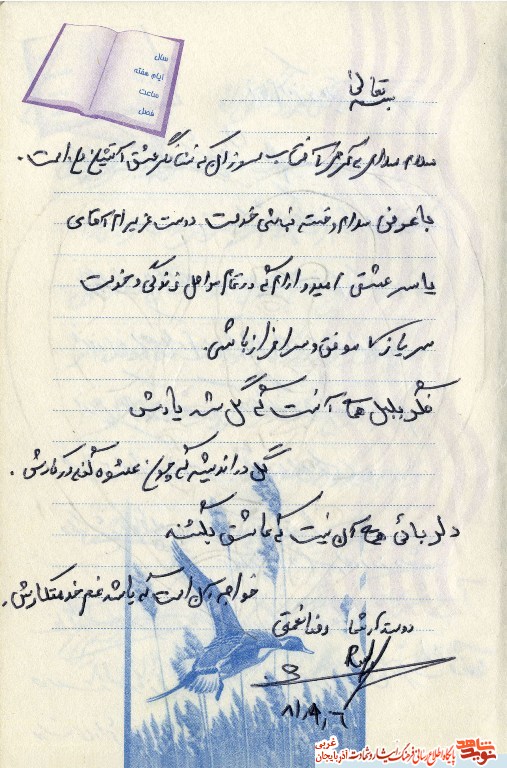 سال
ایام هفته
ساعت
فصل
بسمه تعالی
سلام سلامی به گرمی آفتاب سوزان که نشانگر عشق آتشین است.
با عرض سلام و خسته نباشی خدمت دوست عزیزم آقای
یاسر عشقی امیدوارم که در تمام مراحل زندگی و خدمت
سربازی موفق و سرافراز باشی.
فکر بلبل همه آنست که گل شد یارش
گل در اندیشه که چون عشوه کند در کارش.
دلربائی همه آن نیست که عاشق بکشند
خواجه آن است که باشد غم خدمتکارش.
دوستدار شما رضا نعمتی
۸۱/۹/۶
نوید شاهد
پایگاه اطلاع رسانی فرهنگ ایثار و شهادت آذربایجان غربی